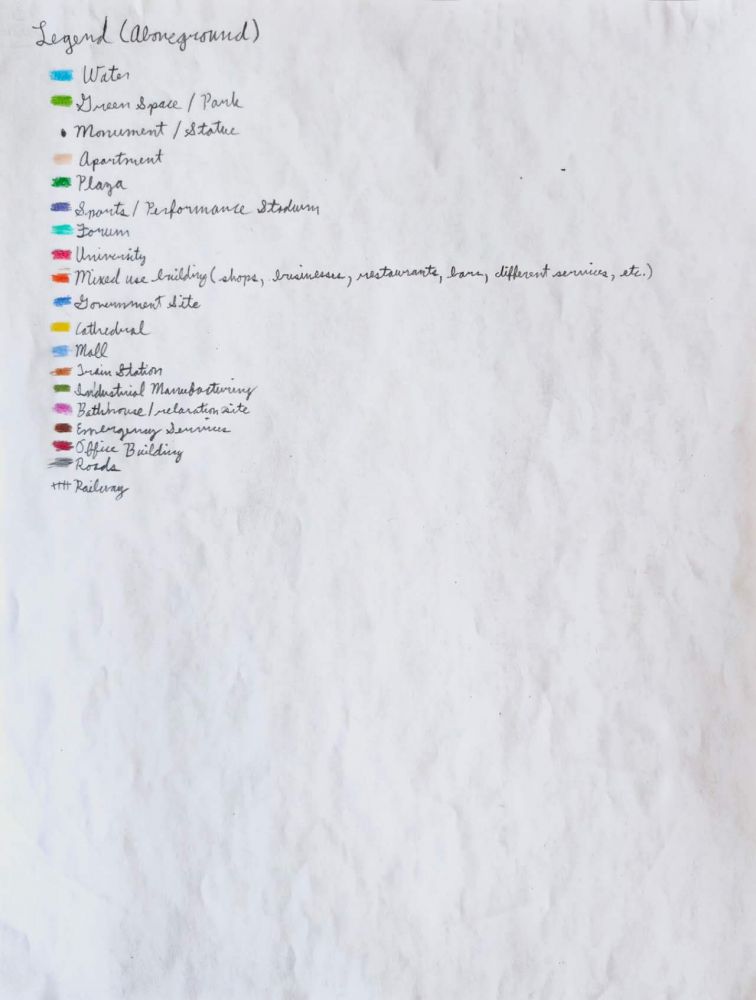 Legend (Aboveground)
Water
Green Space / Park
Monument / Statue
Apartment
Plaza
Sports / Performance Stadium
Forum
University
Mixed use building (shops, businesses, restaurants, bars, different services, etc.)
Government Site
Cathedral
Mall
Train Station
Industrial Manufacturing
Bathhouse / relaxation site
Emergency Services
Office Building
Roads
Railway